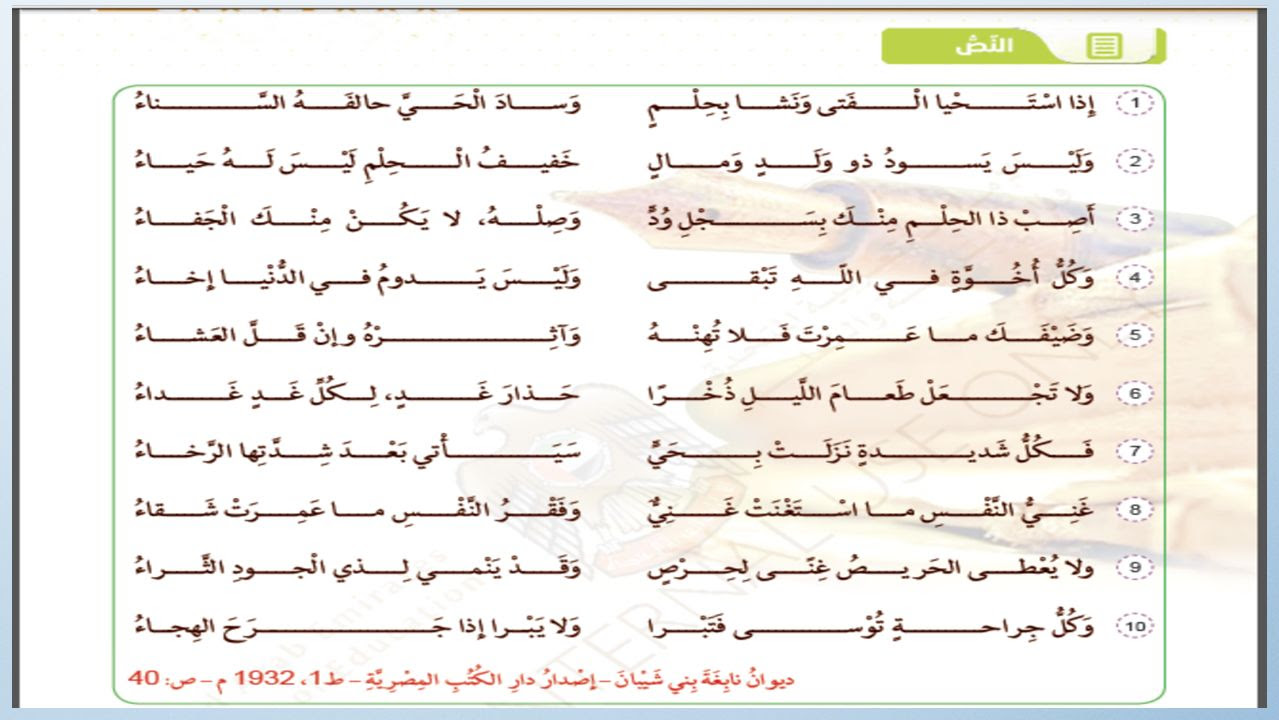 النَّصُّ
1 إِذا اسْتَحْيا الْفَتى وَنَشا بِحِلْمٍ وَسادَ الْحَيَّ حالفَهُ السَّناءُ
2 وَلَيْسَ يَسودُ ذو وَلَدٍ وَمالٍ خَفيفُ الْحِلْمِ لَيْسَ لَهُ حَياءُ
3 أَصِبْ ذا الحِلْمِ مِنْكَ بِسَجْلِ وُدٍّ وَصِلْهُ، لا يَكُنْ مِنْكَ الْجَفاءُ
4 وَكُلُّ أُخُوَّةٍ في اللّهِ تَبْقى وَلَيْسَ يَدومُ في الدُّنْيا إخاءُ
5 وَضَيْفَكَ ما عَمِرْتَ فَلا تُهِنْهُ وَآثِرْهُ وإنْ قَلَّ العَشاءُ
6 وَلا تَجْعَلْ طَعامَ اللَّيلِ ذُخْرًا حَذارَ غَدٍ، لِكُلِّ غَدٍ غَداءُ
7 فَكُلُّ شَديدةٍ نَزَلَتْ بِحَيٍّ سَيَأْتي بَعْدَ شِدَّتِها الرَّخاءُ
8 غَنِيُّ النَّفْسِ ما اسْتَغْنَتْ غَنِيٌّ وَفَقْرُ النَّفْسِ ما عَمِرَتْ شَقاءُ
9 ولا يُعْطى الحَريصُ غِنًى لِحِرْصٍ وَقَدْ يَنْمي لِذي الْجودِ الثَّراءُ
10 وَكُلُّ جِراحةٍ تُوْسى فَتَبْرا وَلا يَبْرا إذا جَرَحَ الهِجاءُ
ديوانُ نابِغَةَ بِني شَيْبْانَ – إصْدارُ دارِ الكُتُبِ المِصْرِيَّةِ – ط1، 1932 م – ص: 40